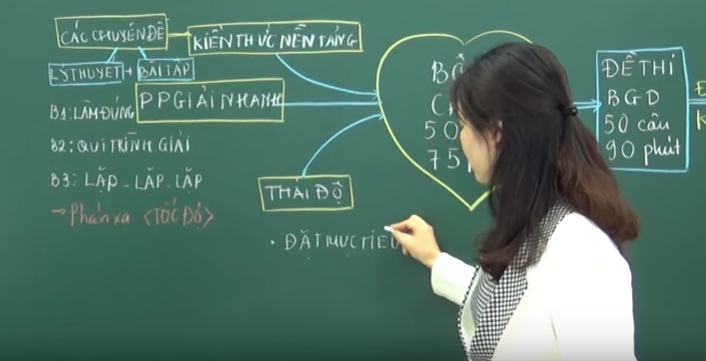 CÁC CHUYÊN ĐỀ
KIẾN THỨC NỀN TẢNG
LÝ THUYẾT + BÀI TẬP
PP GIẢI NHANH
B1: LÀM ĐÚNG
B2: QUI TRÌNH GIẢI
B3: LẶP - LẶP - LẶP
→ Phản xạ <TỐC ĐỘ>
THÁI ĐỘ
• ĐẶT MỤC TIÊU
50
75
ĐỀ THI
BGD
50 câu
90 phút